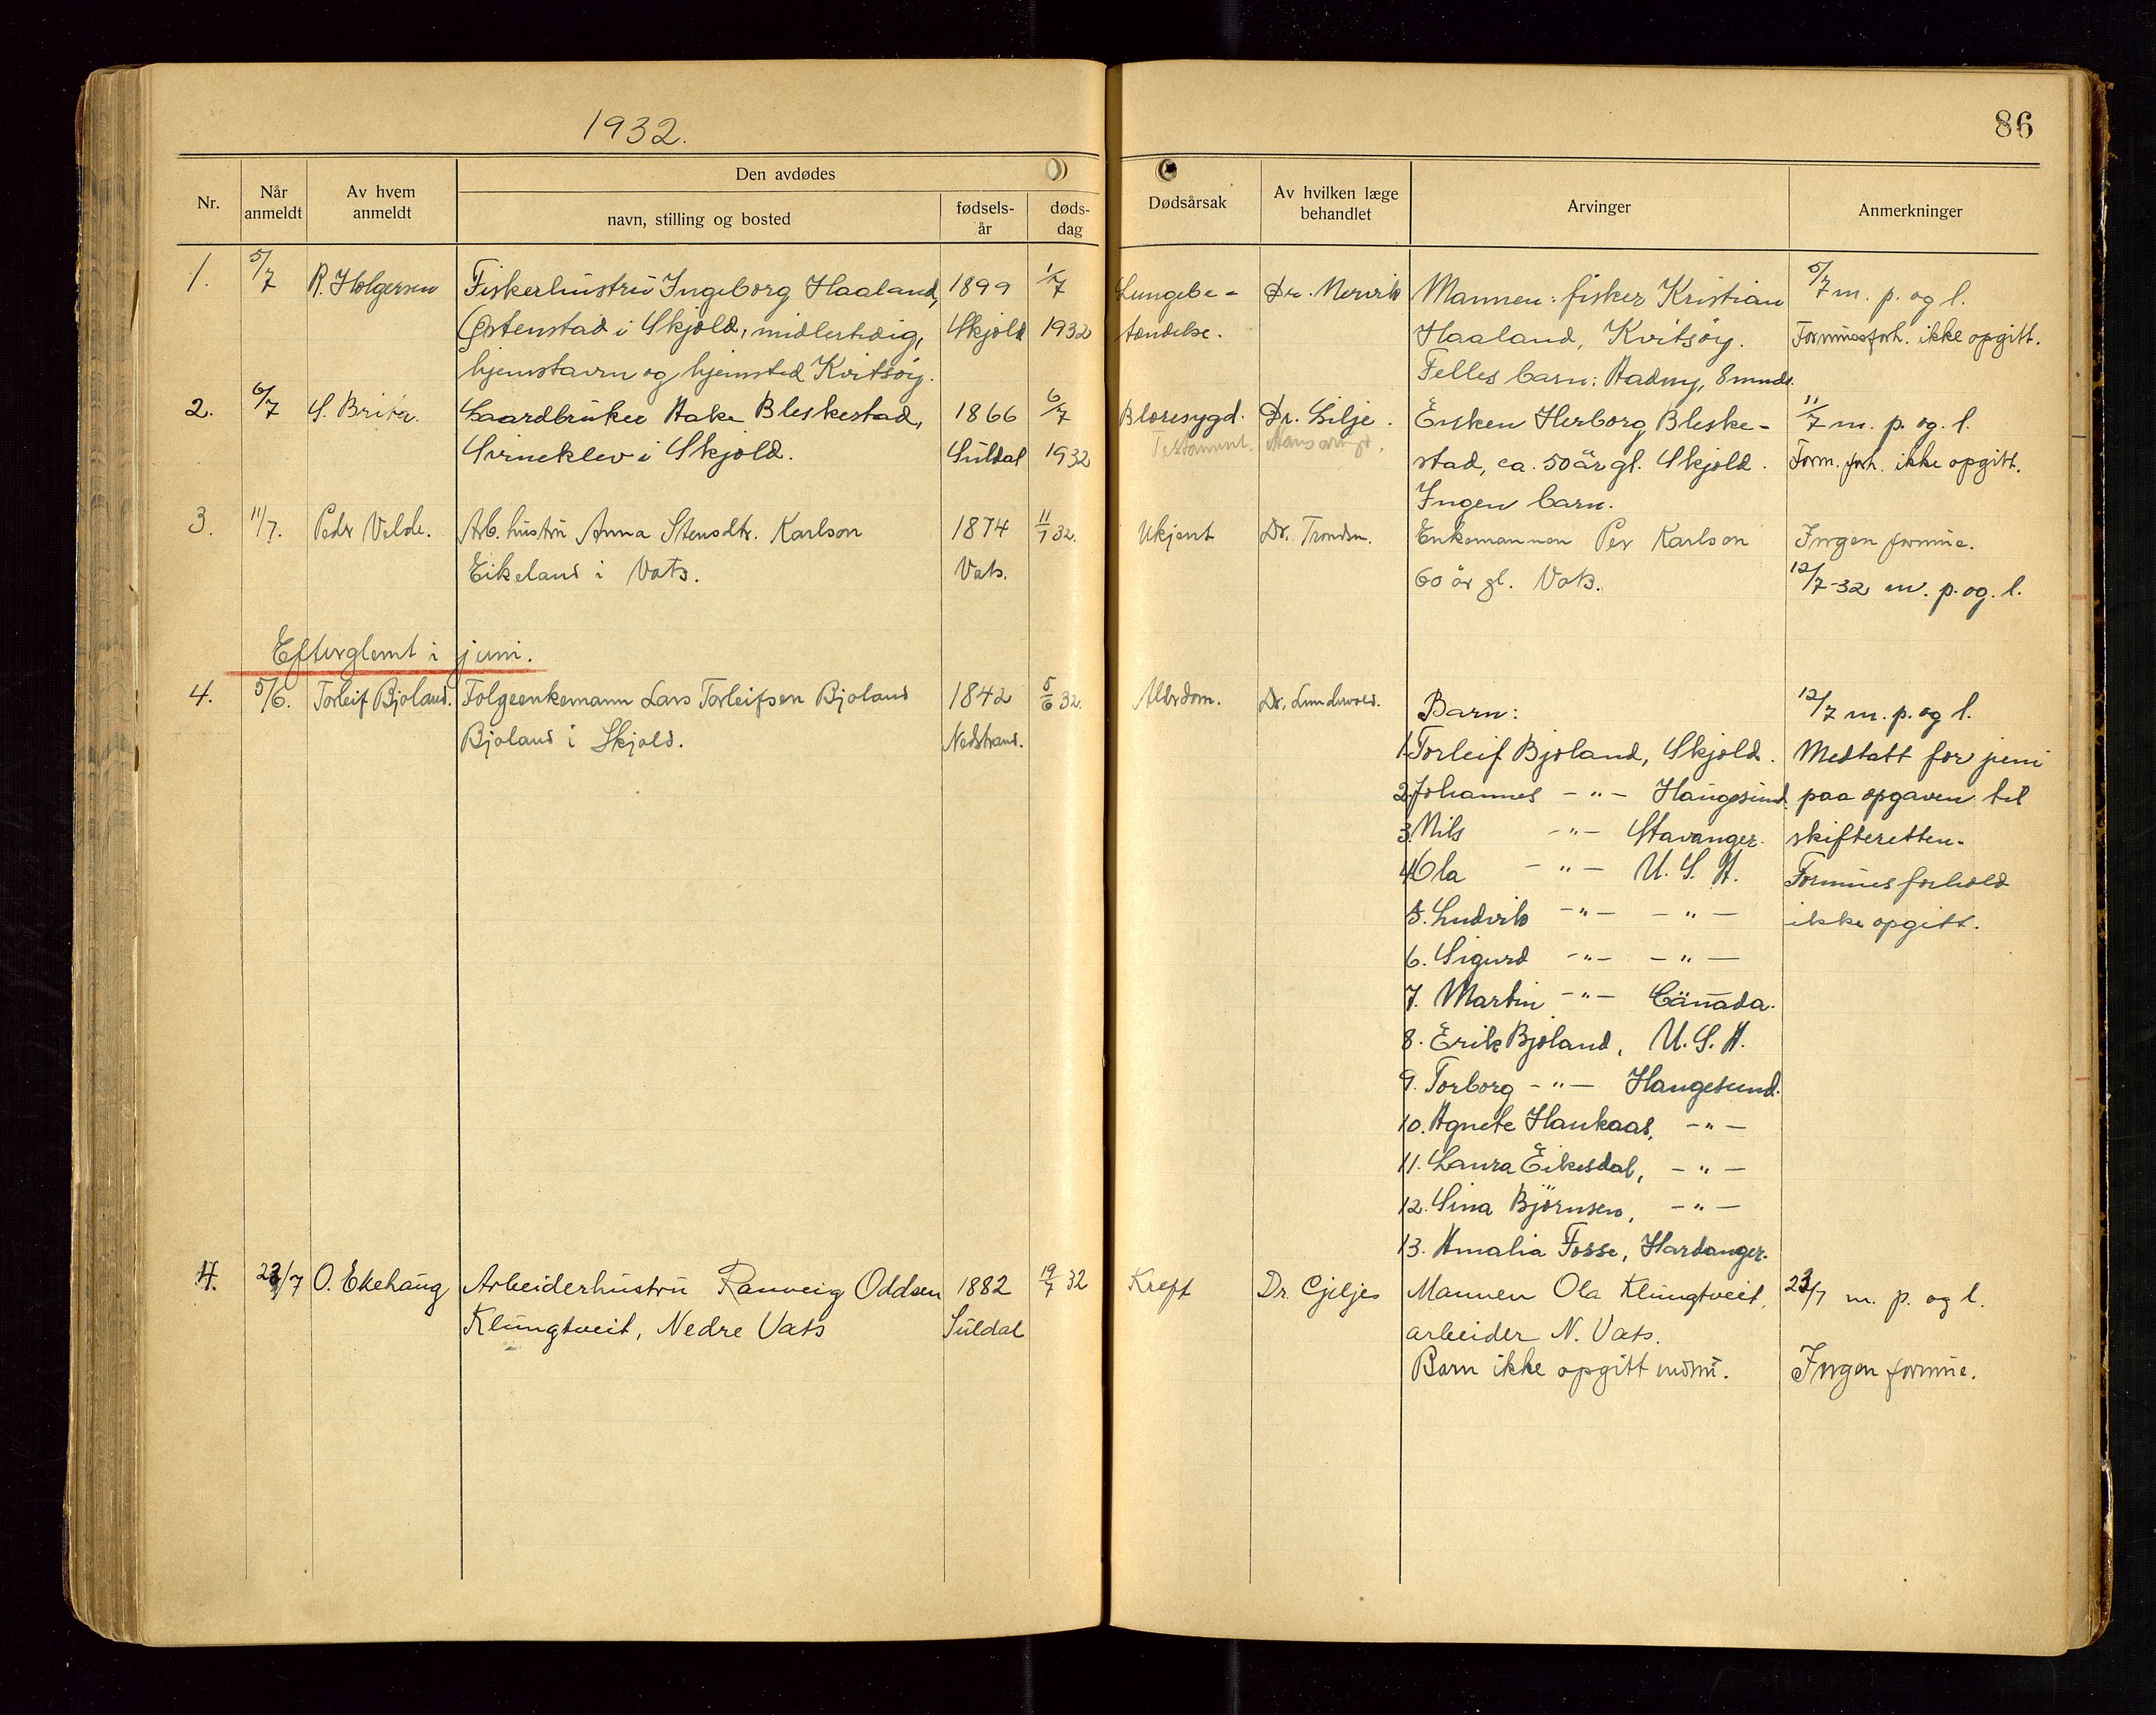 1932.
86
Nr.
Når anmeldt
Av hvem anmeldt
Den avdødes
navn, stilling og bosted
fødsels-år
døds-dag
Dødsårsak
Av hvilken læge behandlet
Arvinger
Anmerkninger
1. 5/7 R. Holgersen Fiskerhustru Ingeborg Haaland, 1899 1/7 Lungebe- Dr. Mervik Mannen: fisker Kristian 5/7 m. p. og l.
Østenstad i Skjold, midlertidig, Skjold 1932 tændelse. Haaland, Kvitsøy. Formuesforh. ikke opgitt.
hjemstavn og hjemsted Kvitsøy. Felles barn: Aadny, 8 mnds.
2. 6/7 S. Gaardbruker Aake Bleskestad, 1866 6/7 Blæresygd. Dr. Lilje. Enken Herborg Bleske- 11/7 m. p. og. l.
i Skjold. Suldal 1932 Testament. stad, ca. 50 år gl. Skjold. Form. forh. ikke opgitt.
Ingen barn.
3. 11/7. Peder Velde. Arb. hustru Anna Stensdtr. Karlson 1874 11/7 32. Ukjent Dr. Trondsn. Enkemannen Per Karlson Ingen formue.
Eikeland i Vats. Vats. 60 år gl. Vats. 12/7-32 m. p. og. l.
Efterglemt i juni.
4. 5/6. Torleif Bjoland. Folgeenkemann Lars Torleifsen Bjoland 1842 5/6 32. Alderdom. Dr. Barn: 12/7 m. p. og l.
Bjoland i Skjold. Nedstrand. 1. Torleif Bjoland, Skjold. Medtatt for juni
2. Johannes -"- Haugesund. paa opgaven til
3. Nils -"- Stavanger. skifteretten.
4. Ola -"- U. S. A. Formuesforhold
5. Ludvik -"- -"- ikke opgitt.
6. Sigurd -"- -"-
7. Martin -"- Canada.
8. Erik Bjoland, U. S. A.
9. Torborg -"- Haugesund.
10. Agnete Haukaas, -"-
11. Laura Eikesdal, -"-
12. Sina Björnsen, -"-
13. Amalia Fosse, Hardanger.
4. 23/7 O. Ekehaug Arbeiderhustru Ranveig Oddsen 1882 19/7 32 Kreft Dr. Gjeljes Mannen Ola Klungtveit, 23/7 m. p. og l.
Klungtveit, Nedre Vats Suldal arbeider N. Vats.
Barn ikke opgitt ennu. Ingen formue.